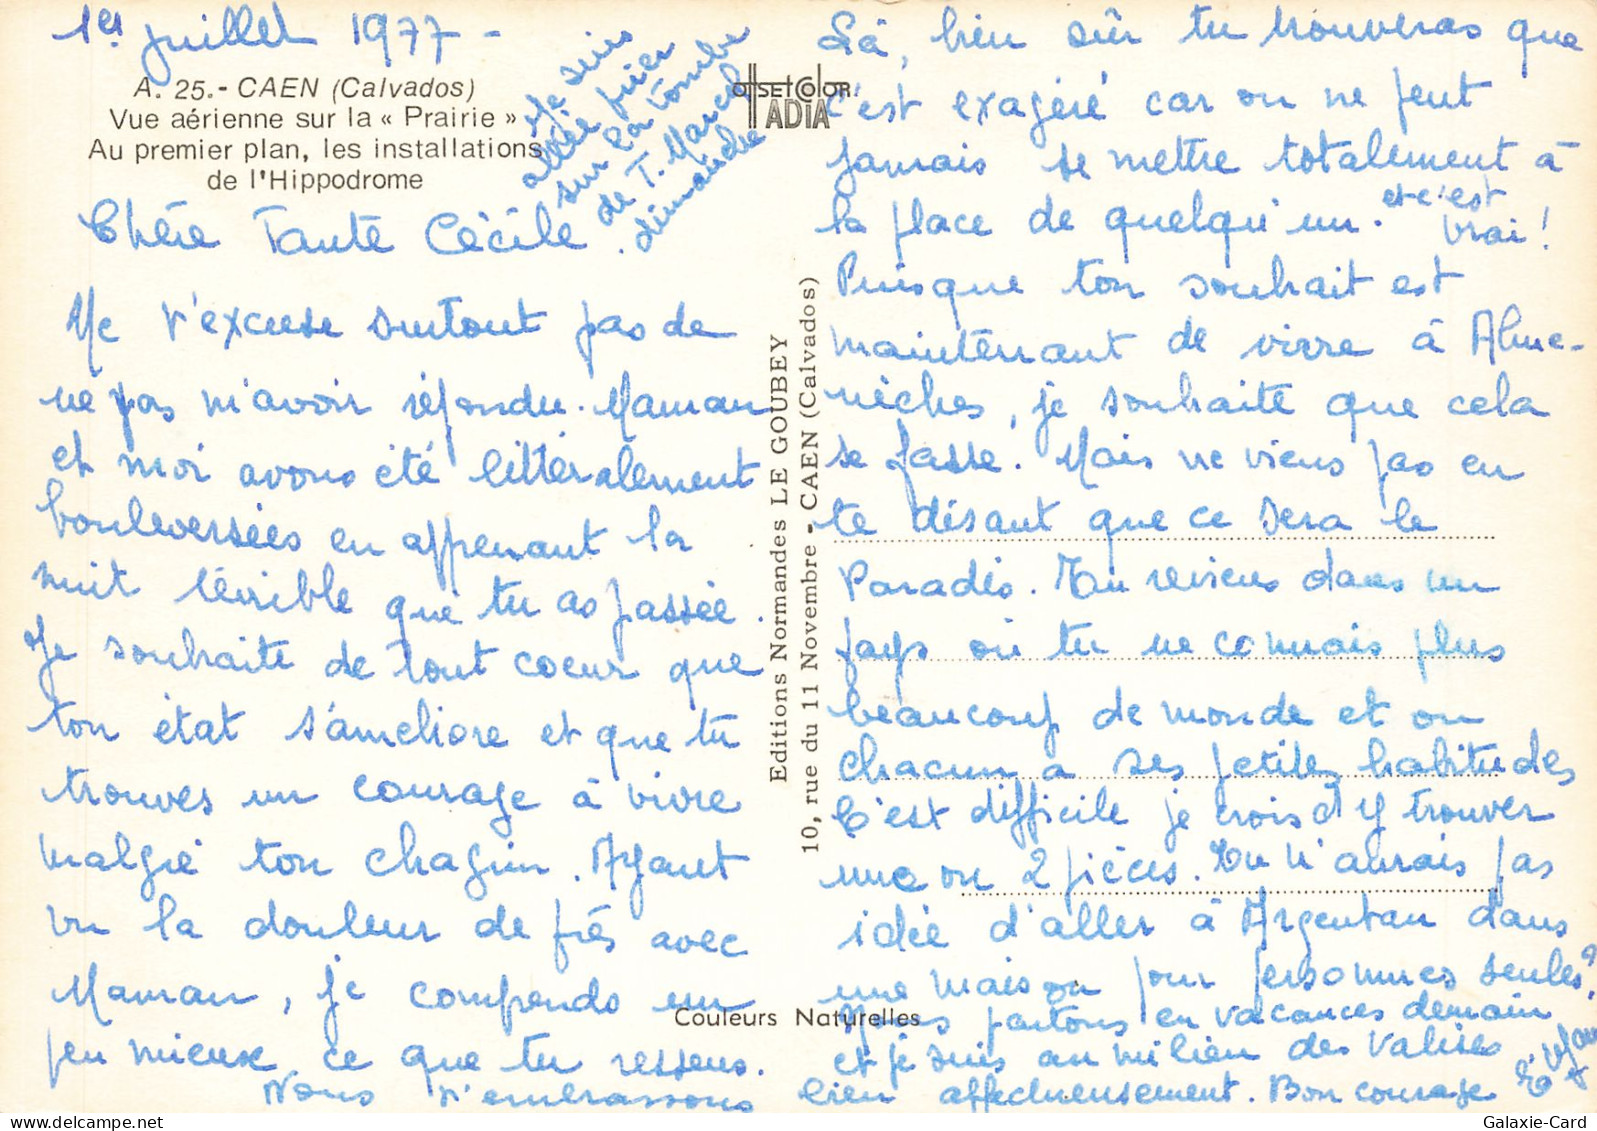 1er juillet 1977 -
A. 25.- CAEN (Calvados)
Vue aérienne sur la « Prairie »
Au premier plan, les installations
de l'Hippodrome
Je suis
allée prier
sur la tombe
de T. Marcel
dimanche
OffSETCOlOR
ADIA
Chère Tante Cécile
Ne t'excuse surtout pas de
ne pas m'avoir répondu. Maman
et moi avons été littéralement
bouleversées en apprenant la
nuit térrible que tu as passée.
Je souhaite de tout coeur que
ton état s'améliore et que tu
trouves un courage à vivre
malgré ton chagrin. Ayant
vu la douleur de près avec
Maman, je comprends un
peu mieux ce que tu ressens.
Là, bien sûr tu trouveras que
c'est exagéré car on ne peut
jamais se mettre totalement à
la place de quelqu'un. et c'est
vrai!
Puisque ton souhait est
maintenant de vivre à Alme-
nèches, je souhaite que cela
se fasse. Mais ne viens pas en
te disant que ce sera le
Paradis. Tu reviens dans un
pays où tu ne connais plus
beaucoup de monde et où
chacun a ses petites habitudes
C'est difficile je crois d'y trouver
une ou 2 pièces. Tu n'aurais pas
idée d'aller à Argentan dans
une maison pour personnes seules?
Nous partons en vacances demain
et je suis au milieu des valises
Nous t'embrassons bien affectueusement. Bon courage
Editions Normandes LE GOUBEY
10, rue du 11 Novembre - CAEN (Calvados)
Couleurs Naturelles
Galaxie-Card